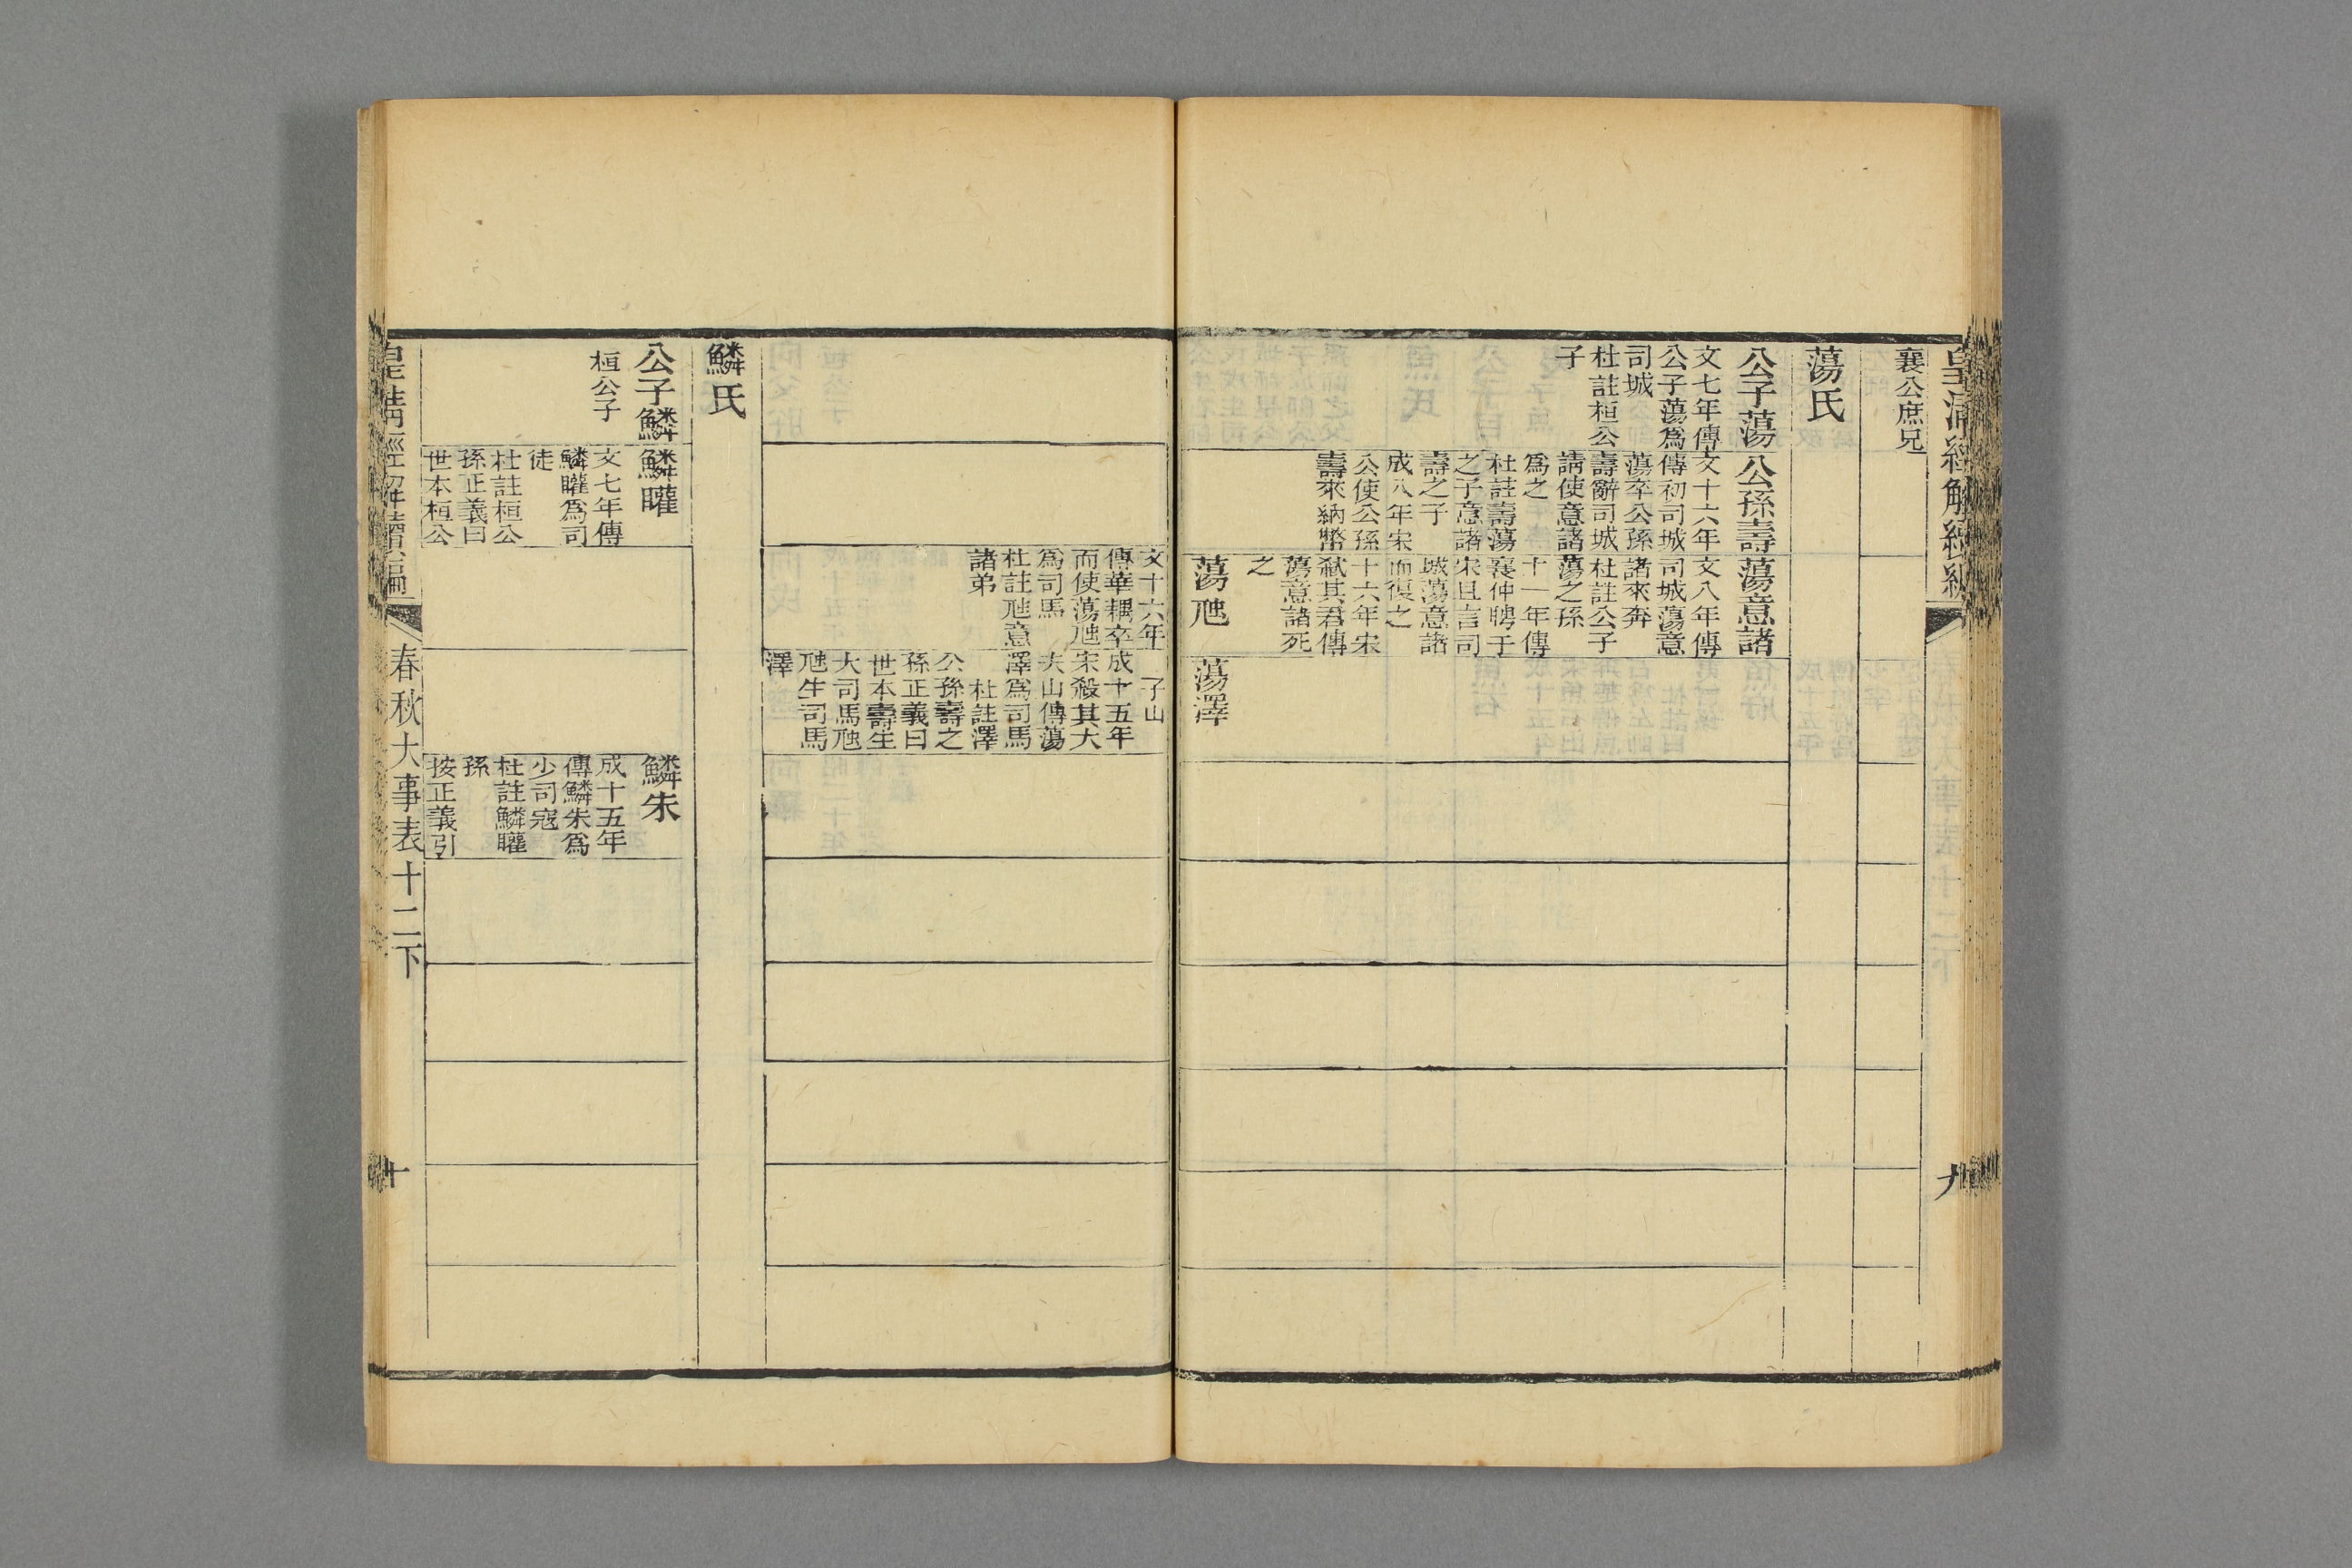 皇清經解續編
九
襄公庶兄
蕩氏
公子蕩
文七年傳
公子蕩爲
司城
杜註桓公
子
公孫壽
文十六年
傳初司城
蕩卒公孫
壽辭司城
請使意諸
爲之
杜註壽蕩
之子意諸
壽之子
成八年宋
公使公孫
壽來納幣
蕩意諸
文八年傳
司城蕩意
諸來奔
杜註公子
蕩之孫
十一年傳
襄仲聘于
宋且言司
城蕩意諸
而復之
十六年宋
弒其君傳
蕩意諸死
之
蕩虺
蕩澤
文十六年
傳華耦卒
而使蕩虺
爲司馬
杜註虺意
諸弟
子山
成十五年
宋殺其大
夫山傳蕩
澤爲司馬
杜註澤
公孫壽之
孫正義曰
世本壽生
大司馬虺
虺生司馬
澤
鱗氏
公子鱗
桓公子
鱗矔
文七年傳
鱗矔爲司
徒
杜註桓公
孫正義曰
世本桓公
鱗朱
成十五年
傳鱗朱爲
少司寇
杜註鱗矔
孫
按正義引
皇清經解續編
春秋大事表十二下
十